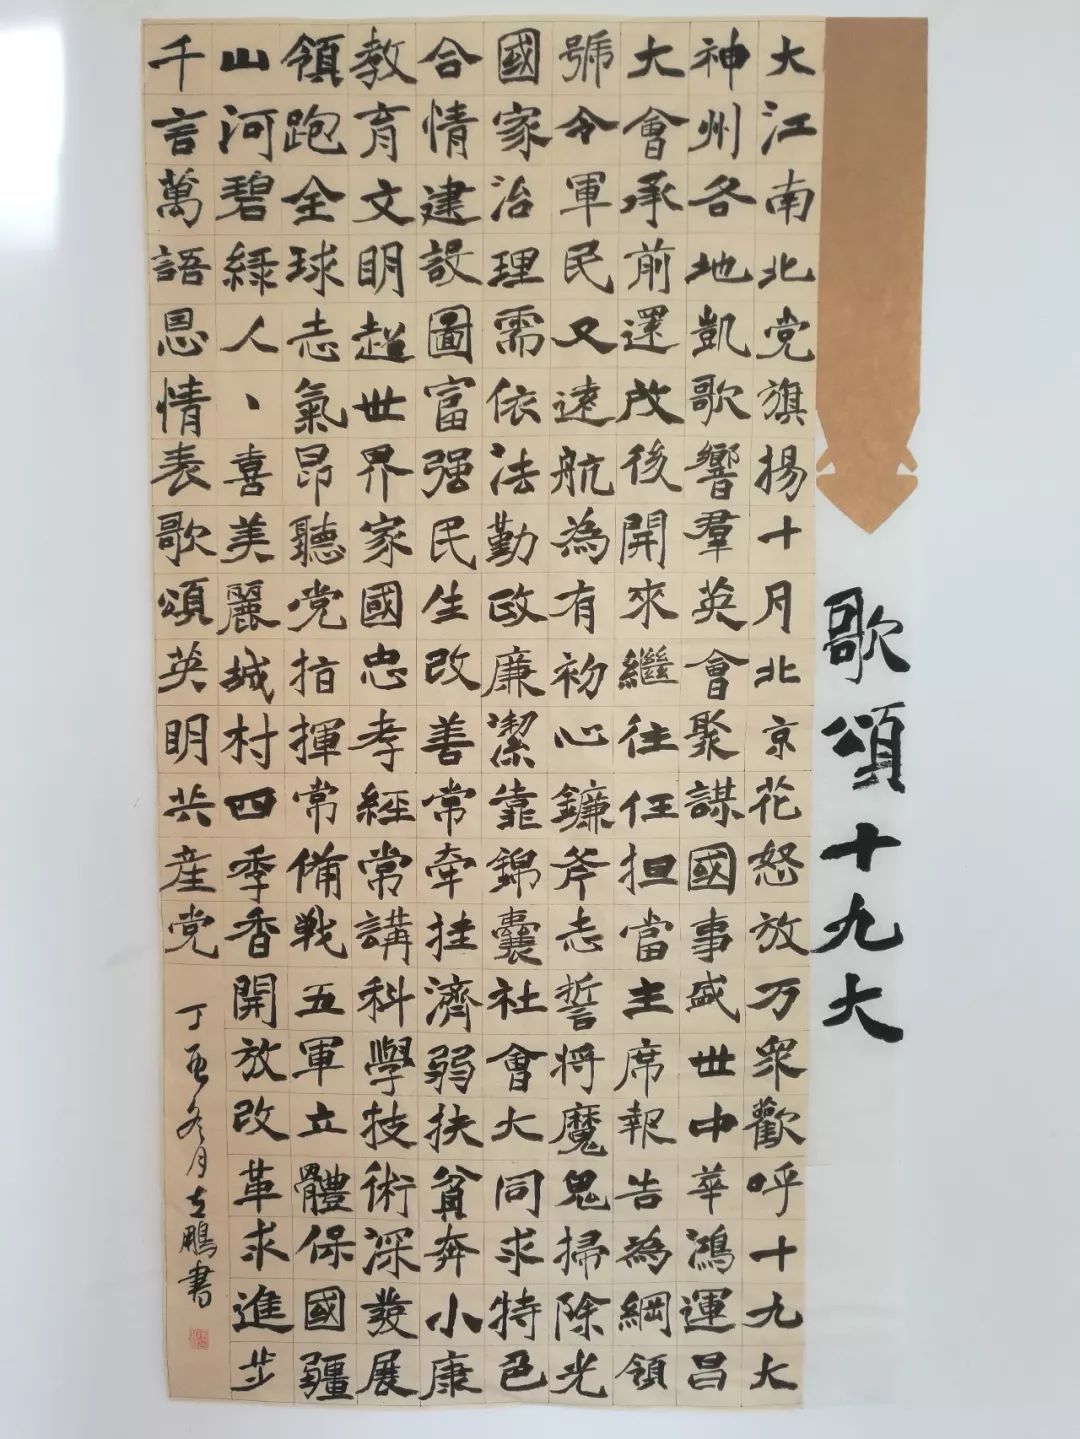 歌頌十九大
大江南北党旗揚十月北京花怒放万衆歡呼十九大
神州各地凱歌響羣英會聚謀國事盛世中華鴻運昌
大會承前還啟後開來繼往任担當主席報告為綱領
號令軍民又遠航為有初心鐮斧志誓將魔鬼掃除光
國家治理需依法勤政廉潔靠錦囊社會大同求特色
合情建設圖富强民生改善常牽挂濟弱扶貧奔小康
教育文明超世界家國忠孝經常講科學技術深發展
領跑全球志氣昂聽党指揮常備戰五軍立體保國疆
山河碧綠人丶喜美麗城村四季香開放改革求進步
千言萬語恩情表歌頌英明共産党
丁酉冬月立鵬書